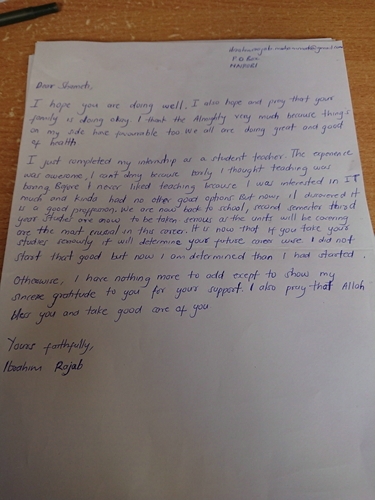 P.O Box
NAIROBI
Dear Shameeh,
I hope you are doing well, I also hope and pray that your
family is doing okay. I thank the Almighty very much because things
on my side have favourable too. We all are doing great and good
of health
I just completed my internship as a student teacher. The experience
was awesome, I cant deny because early I thought teaching was
boring. Before I never liked teaching because I was interested in IT
much and kinda had no other good options But now, I discovered it
is a good profession. We are now back to school, second semester third
year. Studies are now to be taken serious as the units will be covering
are the most crucial in this career. It is now that if you take your
studies seriously it will determine your future career wise. I did not
start that good but now I am determined than I had started.
Otherwise, I have nothing more to add except to show my
sincere gratitude to you for your support. I also pray that Allah
bless you and take good care of you
Yours faithfully,
Ibrahim Rajab